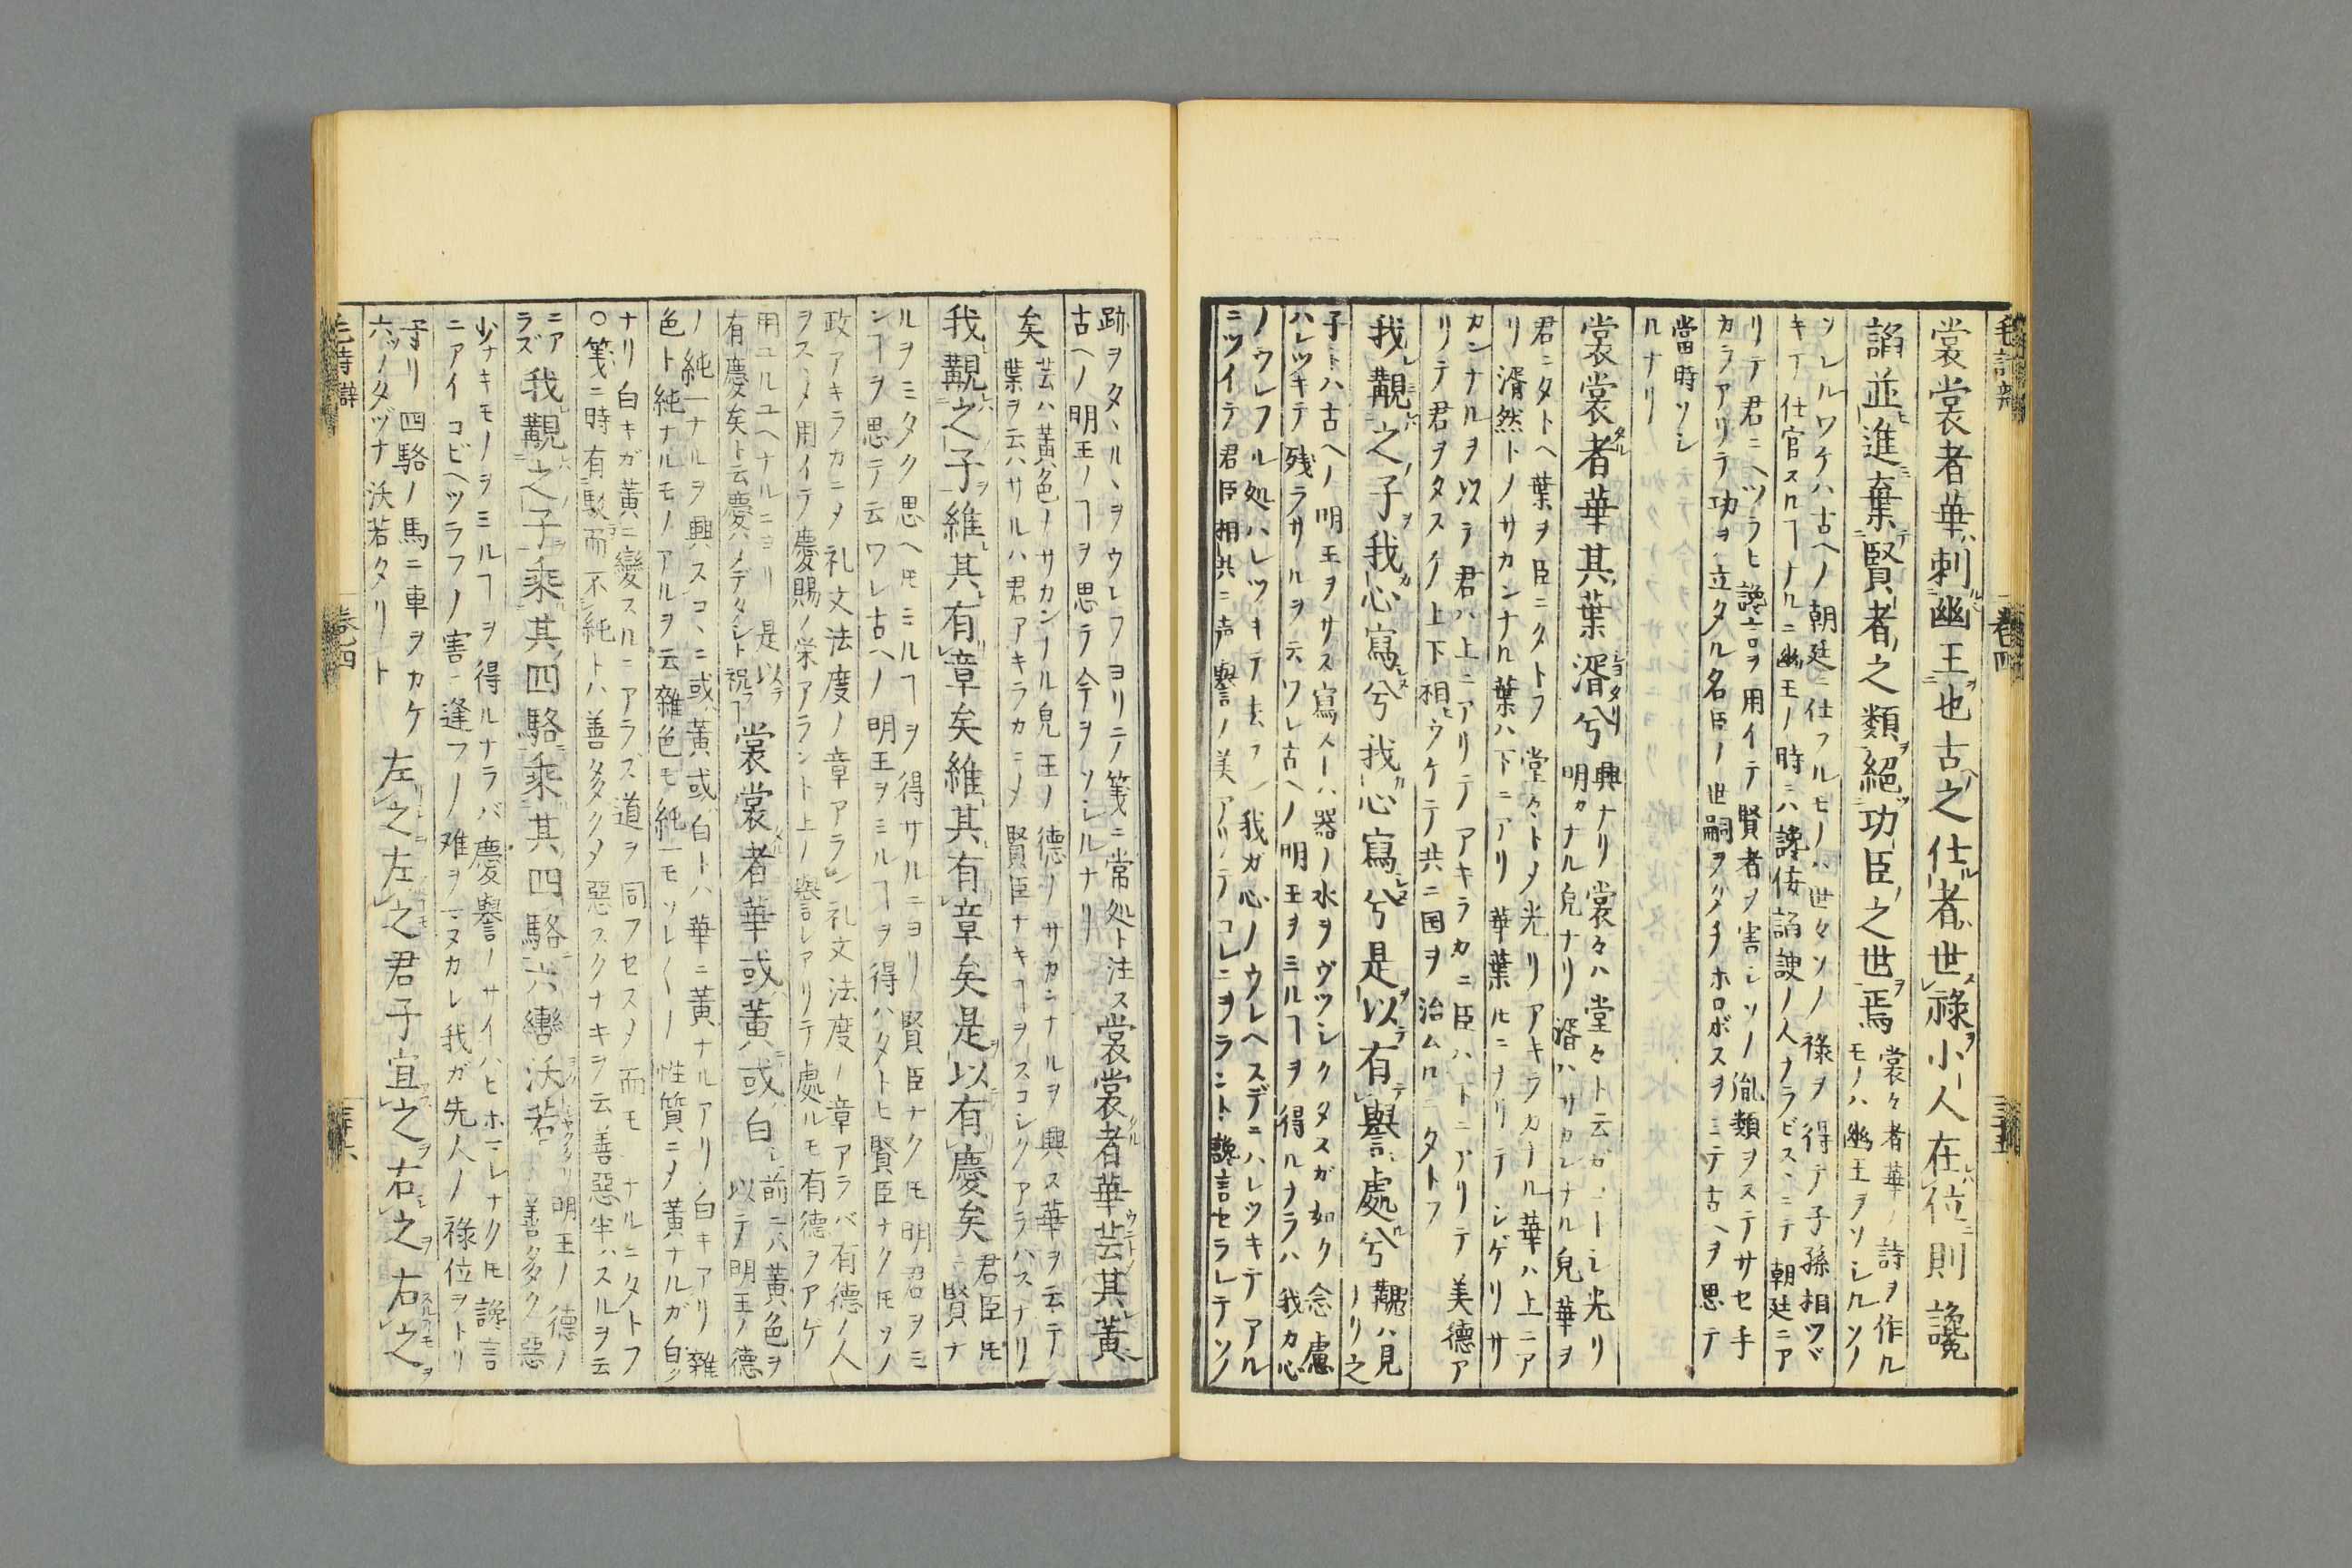 毛詩辯
卷四
裳裳者華刺幽王也古之仕者世祿小人在位則讒
諂並進棄賢者之類絕功臣之世焉
裳々者華ノ詩ヲ作ル
モノハ幽王ヲソシルソノ
ソレルワケハ古ヘノ朝廷ニ仕フルモノハ世々ソノ祿ヲ得テ子孫相ツヾ
キテ仕官スルヿナルニ幽王ノ時ニハ讒侫諂諛ノ人ナラビスヽミテ朝廷ニア
リテ君ニヘツラヒ讒言ヲ用イテ賢者ヲ害シソノ胤類ヲステサセ手
カラアリテ功ヲ立タル名臣ノ世嗣ヲタチホロボスヲミテ古ヘヲ思テ
當時ソシ
ルナリ
裳裳者華其葉湑兮
興ナリ裳々ハ堂々ト云カ
明カナル皃ナリ湑ハサカンナル皃華ヲ
君ニタトヘ葉ヲ臣ニタトフ堂々トメ光リアキラカナル華ハ上ニア
リ湑然トノサカンナル葉ハ下ニアリ華葉ルニナリテシゲリサ
カンナルヲ以テ君ハ上ニアリテアキラカニ臣ハトニアリテ美德ア
リテ君ヲタスケ上下相ウケテ共ニ国ヲ治ムルニタトフ
我覯之子我心寫兮我心寫兮是以有譽處兮
覯ハ見
ノリ之
子トハ古ヘノ明王ヲサス寫スーハ器ノ水ヲヴツシクタスガ如ク念慮
ハレツキテ残ラサルヲ云ワレ古ヘノ明王ヲミルヿヲ得ルナラハ我カ心
ノウレフル処ハレツキテ去フン我ガ心ノウレヘスデニハレツキテアル
ニツイテ君臣相共ニ声譽ノ美アリテコレニヲラント讒言セラレテソノ
跡ヲタヽルヽヲウレフヨリテ箋ニ常処ト注ス
古ヘノ明王ノヿヲ思ラ今ヲソシルナリ
裳裳者華芸其黃
矣
芸ハ黃色ノサカンナル皃王ノ德ノサカンナルヲ興ス華ヲ云テ
葉ヲ云ハサルハ君アキラカニメ賢臣ナキヿヲスコシクアラハスナリ
我覯之子維其有章矣維其有章矣是以有慶矣
君臣モ
ニ賢ナ
ルヲミタク思ヘモミルヿヲ得サルニヨリ賢臣ナクモ明君ヲミ
ンヿヲ思テ云ワレ古ヘノ明王ヲミルヿヲ得ハタトヒ賢臣ナクモソノ
政アキラカニメ礼文法度ノ章アラン礼文法度ノ章アラバ有德ノ人
ヲスヽメ用イラ慶賜ノ栄アラント上ノ譽レアリテ處ルモ有德ヲアケ
用ユルユヘナルニヨリ是以テ
有慶矣ト云慶ハノデタシト祝フヿ
裳裳者華或黃或白
前ニハ黃色ヲ
以テ明王ノ德
ノ純一ナルヲ興スコヽニ或黃或白トハ華ニ黃ナルアリ白キアリ雜
色ト純ナルモノアルヲ云雜色モ純一モソレ〱ノ性質ニメ黃ナルガ白
ナリ白キガ黃ニ變スルニアラズ道ヲ同フセスメ而モナルニタトフ
○箋ニ時有駁而不純トハ善多クメ惡スクナキヲ云善惡半ハスルヲ云
ニア
ラズ
我覯之子乘其四駱乘其四駱六轡沃若
明王ノ德ノ
善多ク惡
少ナキモノヲミルヿヲ得ルナラバ慶譽ノサイハヒホマレナクモ讒言
ニアイコビヘツラフノ害ニ逢フノ难ヲマヌカレ我ガ先人ノ祿位ヲトリ
守リ四駱ノ馬ニ車ヲカケ
六ツノタヅナ沃若タリト
左之左之君子宜之右之右之
毛詩辯
卷四